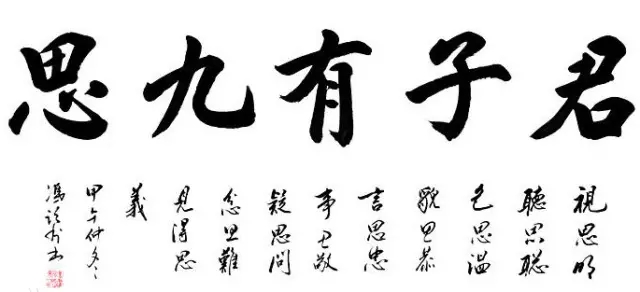 君子有九思
視思明
聽思聪
色思温
貌思恭
言思忠
事思敬
疑思問
忿思難
見得思
義
甲午仲冬
馮